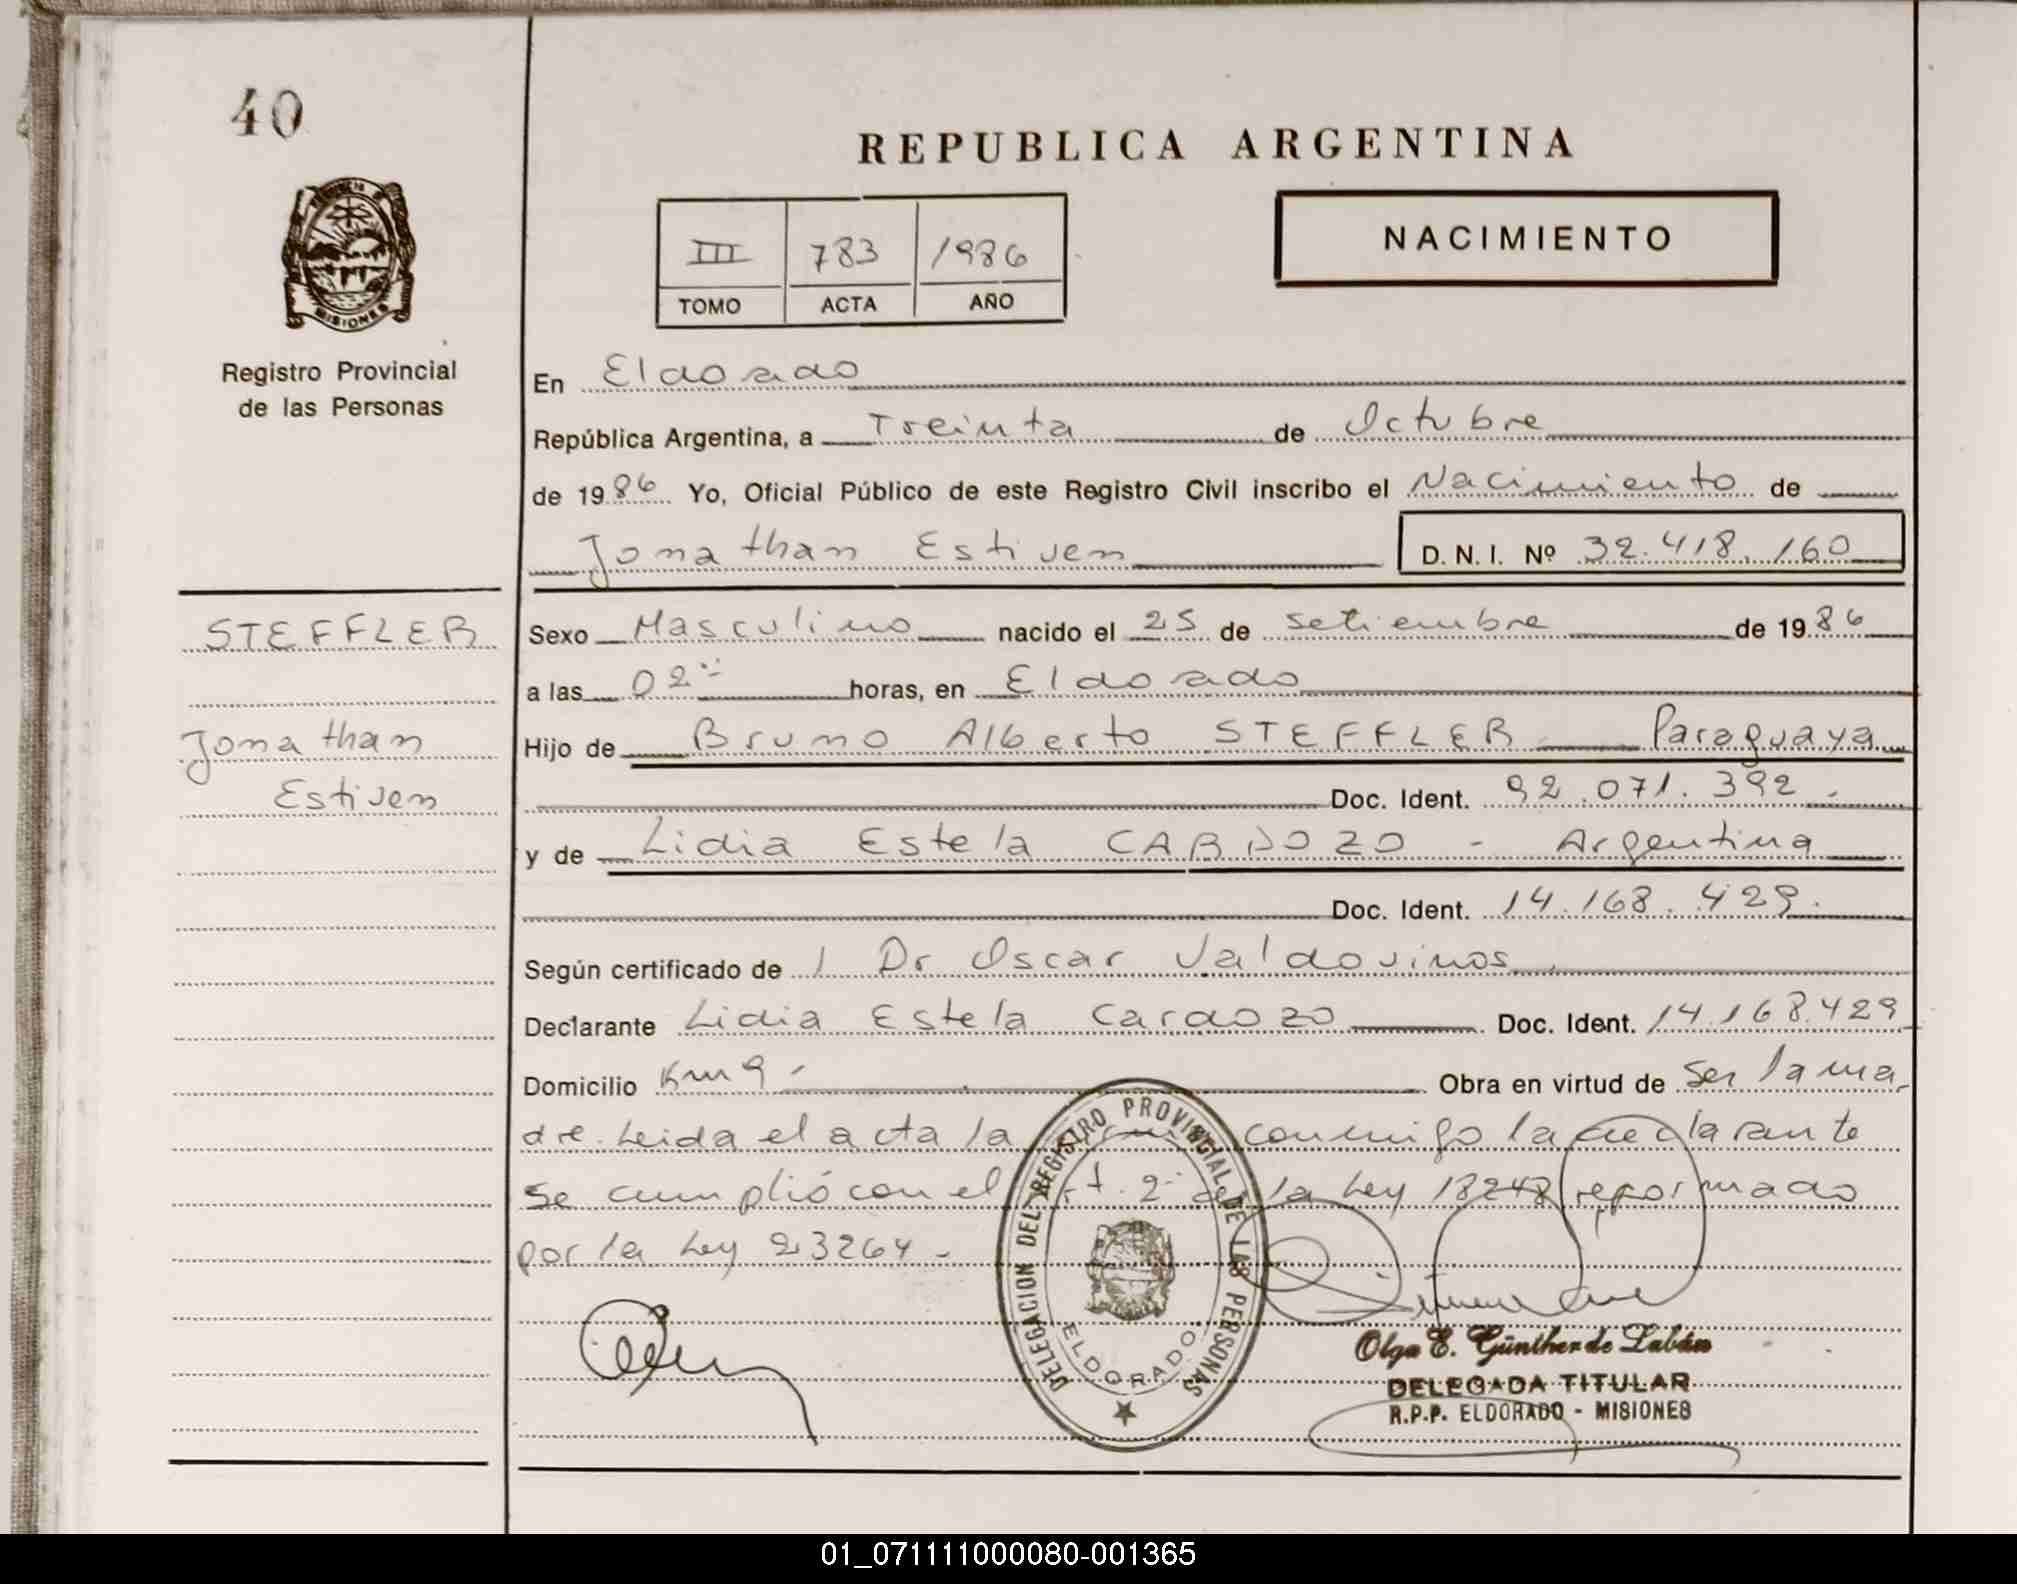 40
REPUBLICA ARGENTINA
PROVINCIA DE
MISIONES
III 783 1986
TOMO ACTA AÑO
NACIMIENTO
Registro Provincial
de las Personas
En Eldorado
República Argentina, a Treinta de Octubre
de 1986 Yo, Oficial Público de este Registro Civil inscribo el Nacimiento de
Jonathan Estiven D.N.I. Nº 32.418.160
STEFFLER
Jonathan
Estiven
Sexo Masculino nacido el 25 de setiembre de 1986
a las 02 horas, en Eldorado
Hijo de Bruno Alberto STEFFLER Paraguaya
Doc. Ident. 92.071.392.
y de Lidia Estela CARDOZO - Argentina
Doc. Ident. 14.168.429.
Según certificado de Dr Oscar Valdovinos
Declarante Lidia Estela Cardozo Doc. Ident. 14.168.429
Domicilio Km 9 - Obra en virtud de ser la ma-
dre. Leida el acta la conmigo la declarante
se cumplió con el Art. 2 de la Ley 18248 reformado
por la Ley 23264 -
DELEGACION DEL REGISTRO PROVINCIAL DE LAS PERSONAS
ELDORADO
Olga E. Günther de Labán
DELEGADA TITULAR
R.P.P. ELDORADO - MISIONES
01_071111000080-001365